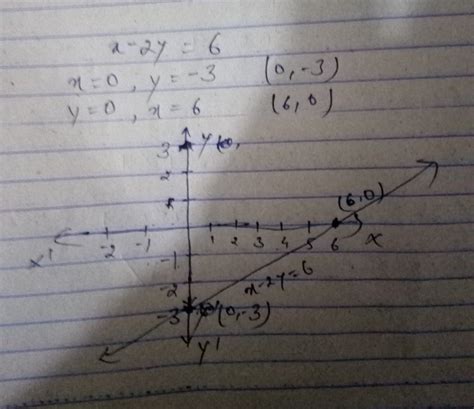 x-2y = 6
x=0, y=-3 (0,-3)
y=0, x=6 (6,0)
3 y (0,
2
1
(6,0)
-2 -1 1 2 3 4 5 6 x
x'
-1
-2 x-2y=6
-3 (0,-3)
y'